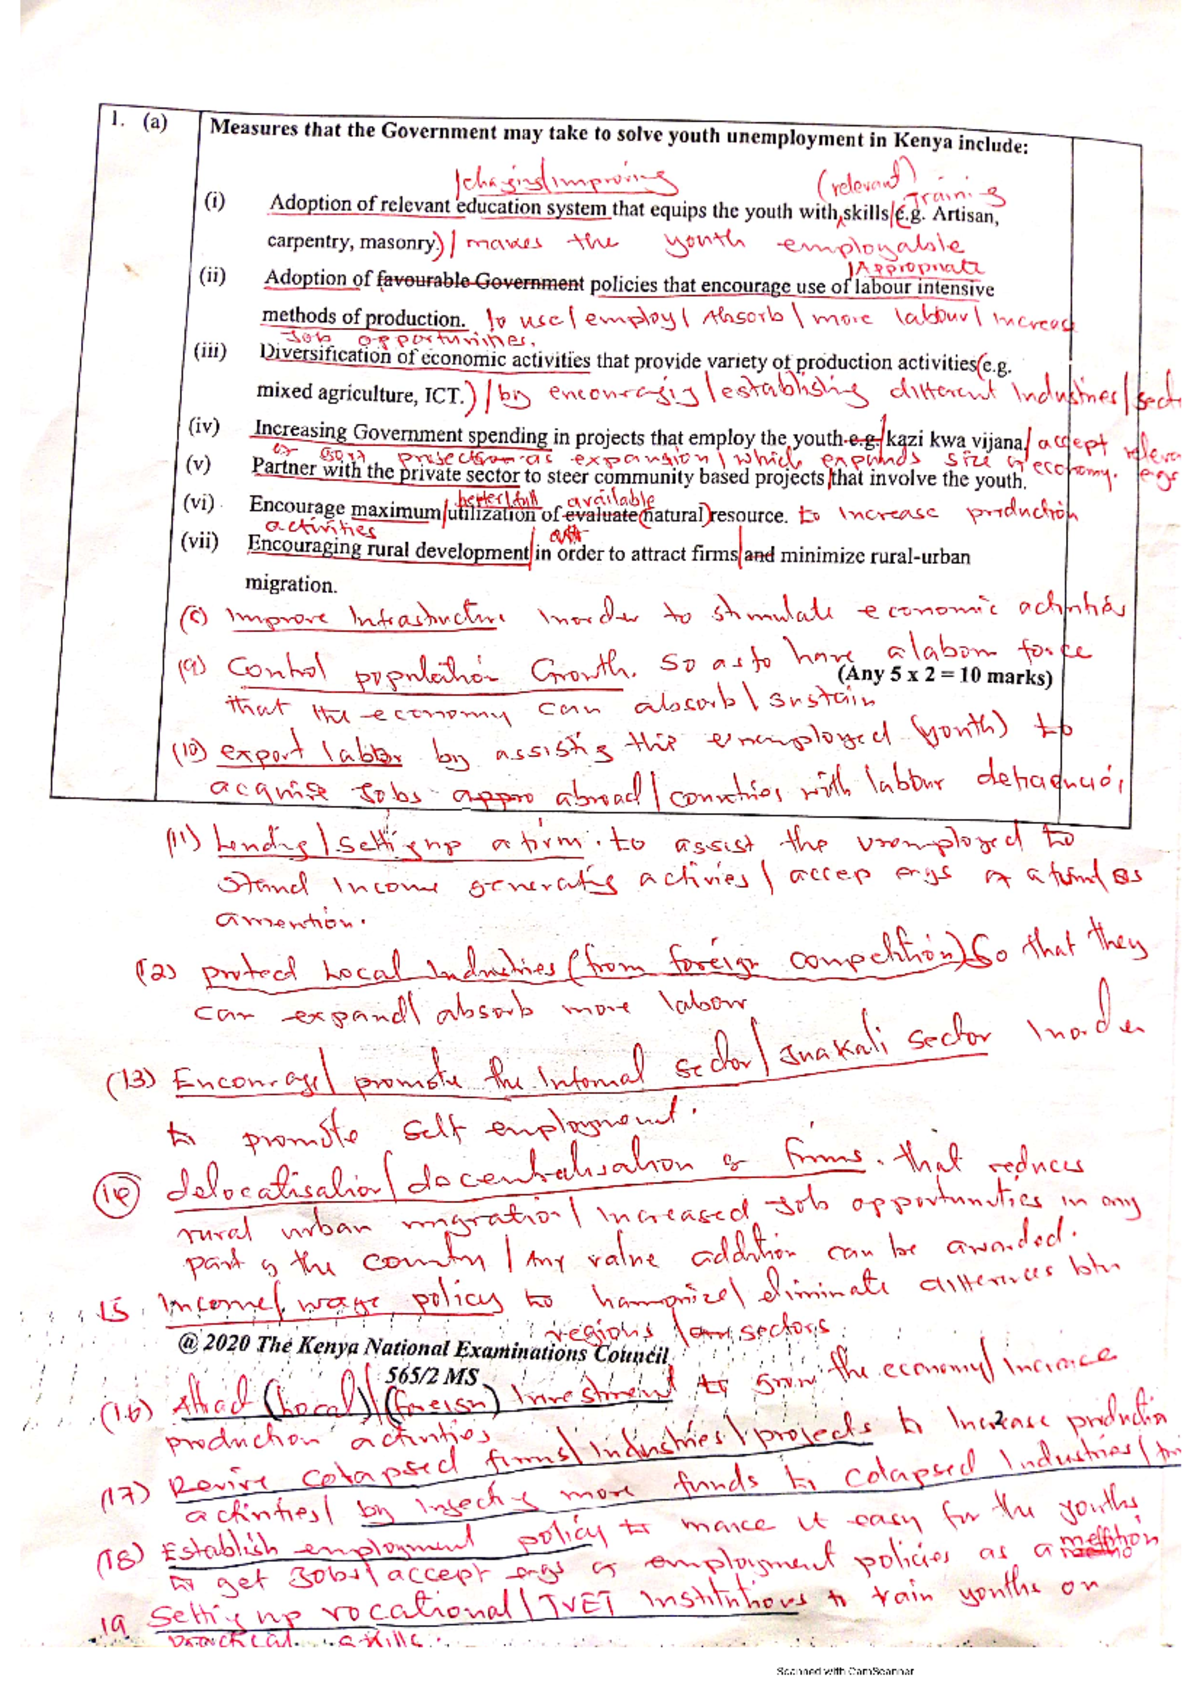 1. (a) Measures that the Government may take to solve youth unemployment in Kenya include:
/changing/improving (relevant)
Training
(i) Adoption of relevant education system that equips the youth with skills/(e.g. Artisan,
carpentry, masonry.)/ makes the youth employable
/Appropriate
(ii) Adoption of favourable Government policies that encourage use of labour intensive
methods of production. to use/employ/Absorb/more labour/increase
Job opportunities.
(iii) Diversification of economic activities that provide variety of production activities(e.g.
mixed agriculture, ICT.)/by encouraging/establishing different Industries/sect
(iv) Increasing Government spending in projects that employ the youth e.g./kazi kwa vijana/accept releva
expansion/which expands size of economy. egs
(v) Partner with the private sector to steer community based projects/that involve the youth.
better/full available
(vi) Encourage maximum/utilization of evaluate(natural)resource. to Increase production
activities
(vii) Encouraging rural development/in order to attract firms/and minimize rural-urban
migration.
(8) Improve Infrastructure inorder to stimulate economic activities
(9) Control population Growth. so as to have a labour force
(Any 5 x 2 = 10 marks)
that the economy can absorb/sustain
(10) export labour by assisting the unemployed (youth) to
acquire Jobs appro abroad/countries with labour deficiencies
(11) Lending/Setting up a firm. to assist the unemployed to
Stand Income generating activies/accep egs of a fund as
amention.
(12) protect Local Industries (from foreign competition) So that they
can expand/absorb more labour
(13) Encourage/promote the informal sector/Juakali sector Inorder
to promote self employment.
(14) delocatisation/decentralisation of firms. that reduces
rural urban migration/Increased Job opportunities in any
part of the country/Any value addition can be awarded.
15. Income/wage policy to harmonize/eliminate differences btn
regions /are sectors
@ 2020 The Kenya National Examinations Council
565/2 MS
(16) Attract (Local)/(foreign) Investment to grow the economy/increase
production activities
2
(17) Revive colapsed firms/industries/projects to Increase productio
activities/by Injecting more funds to colapsed Industries/
(18) Establish employment policy to make it easy for the youths
to get Jobs/accept egs of employment policies as a mention
19 Setting up vocational/TVET Institutions to train youths on
practical skills.
Scanned with CamScanner